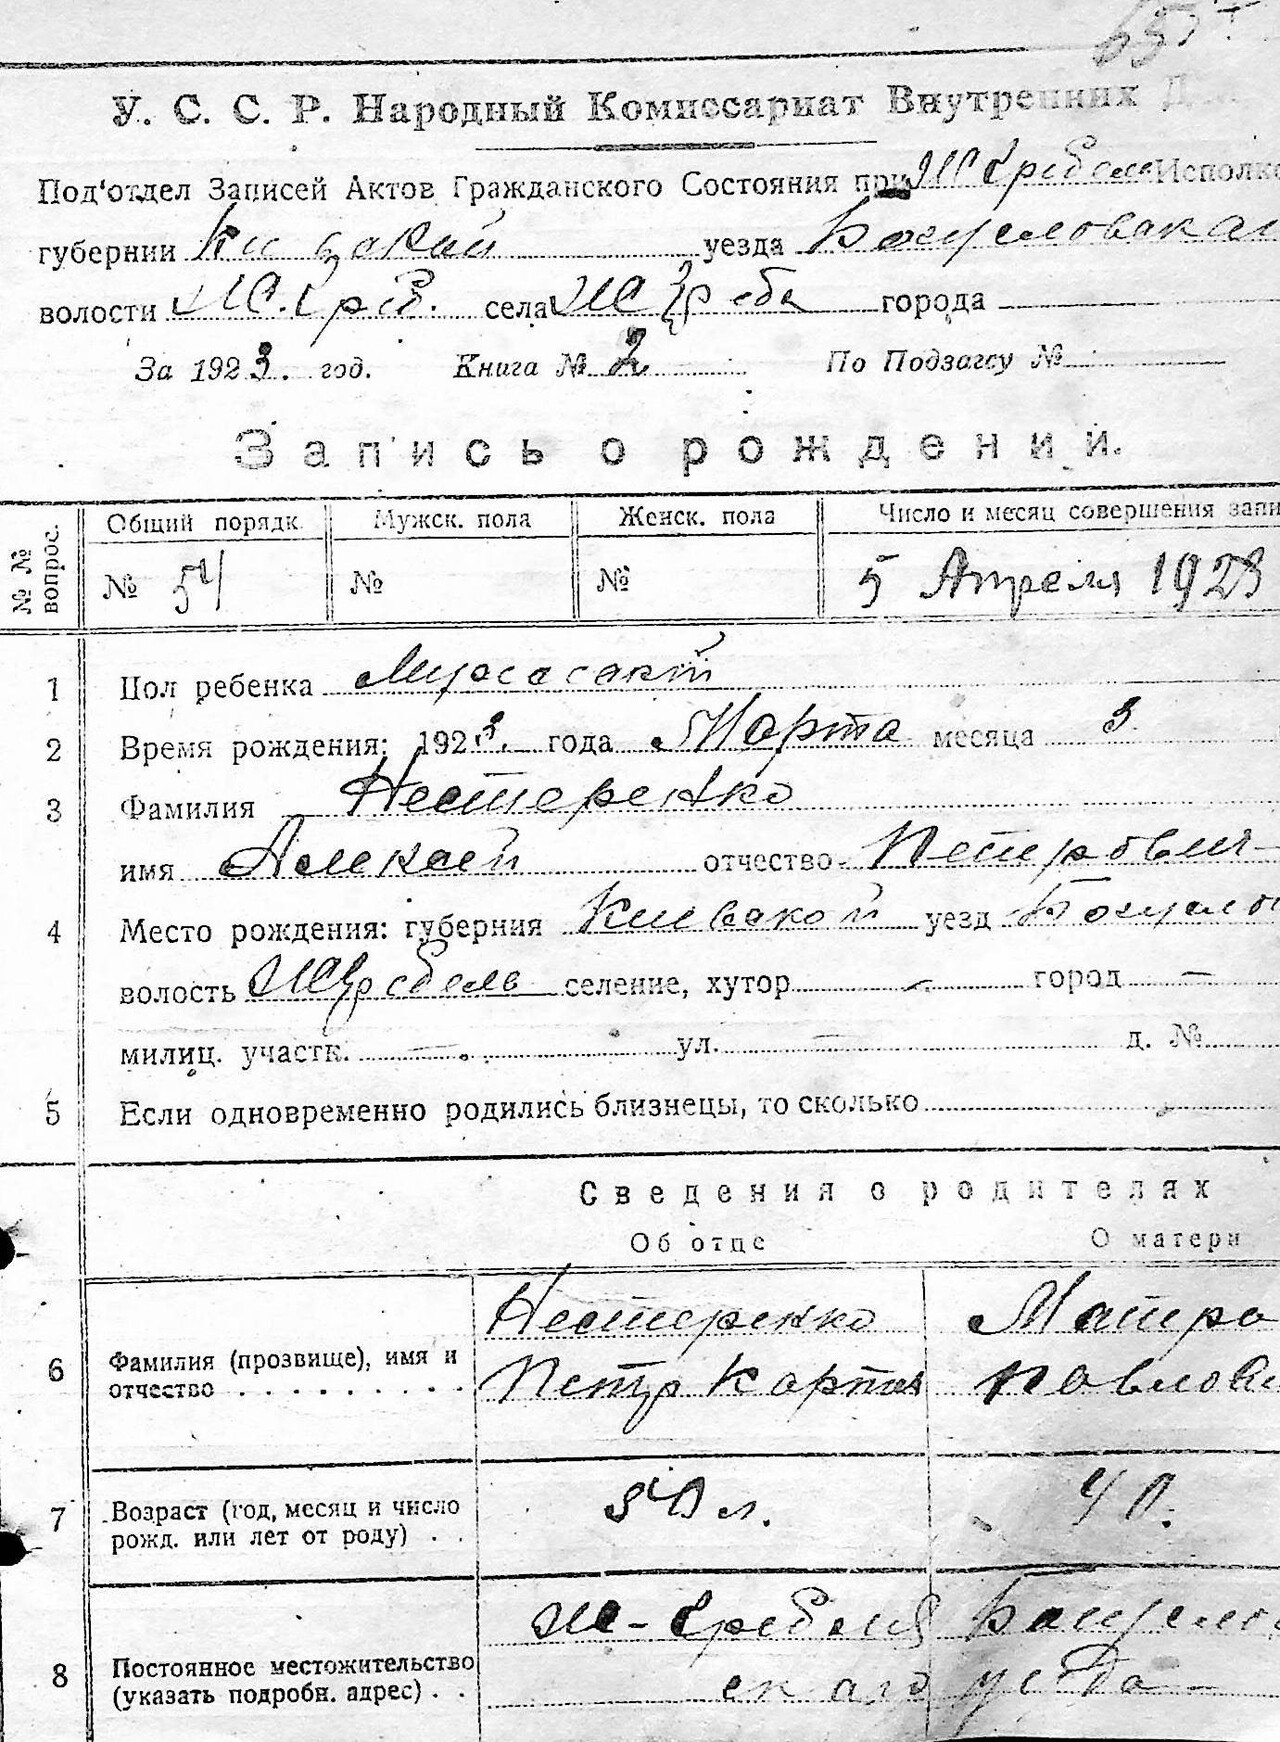 У. С. С. Р. Народный Комиссариат Внутренних
Под'отдел Записей Актов Гражданского Состояния при Исполк
губернии уезда
волости села города
За 1923. год. Книга № 2 По Подзагсу №
Запись о рождении.
№ № вопрос. Общий порядк. Мужск. пола Женск. пола Число и месяц совершения запи
№ 54 № № 5 Апреля 1923
1 Пол ребенка
2 Время рождения: 1923. года Марта месяца 3
3 Фамилия Нестеренко
имя Алексей отчество Петрович
4 Место рождения: губерния Киевской уезд Богусло
волость селение, хутор - город -
милиц. участк. - ул. - д. №
5 Если одновременно родились близнецы, то сколько
Сведения о родителях
Об отце О матери
6 Фамилия (прозвище), имя и отчество Нестеренко Матро
Петр Карпов Павлов
7 Возраст (год, месяц и число рожд. или лет от роду) л. 40.
8 Постоянное местожительство (указать подробн. адрес) Богусло
ского уезда -